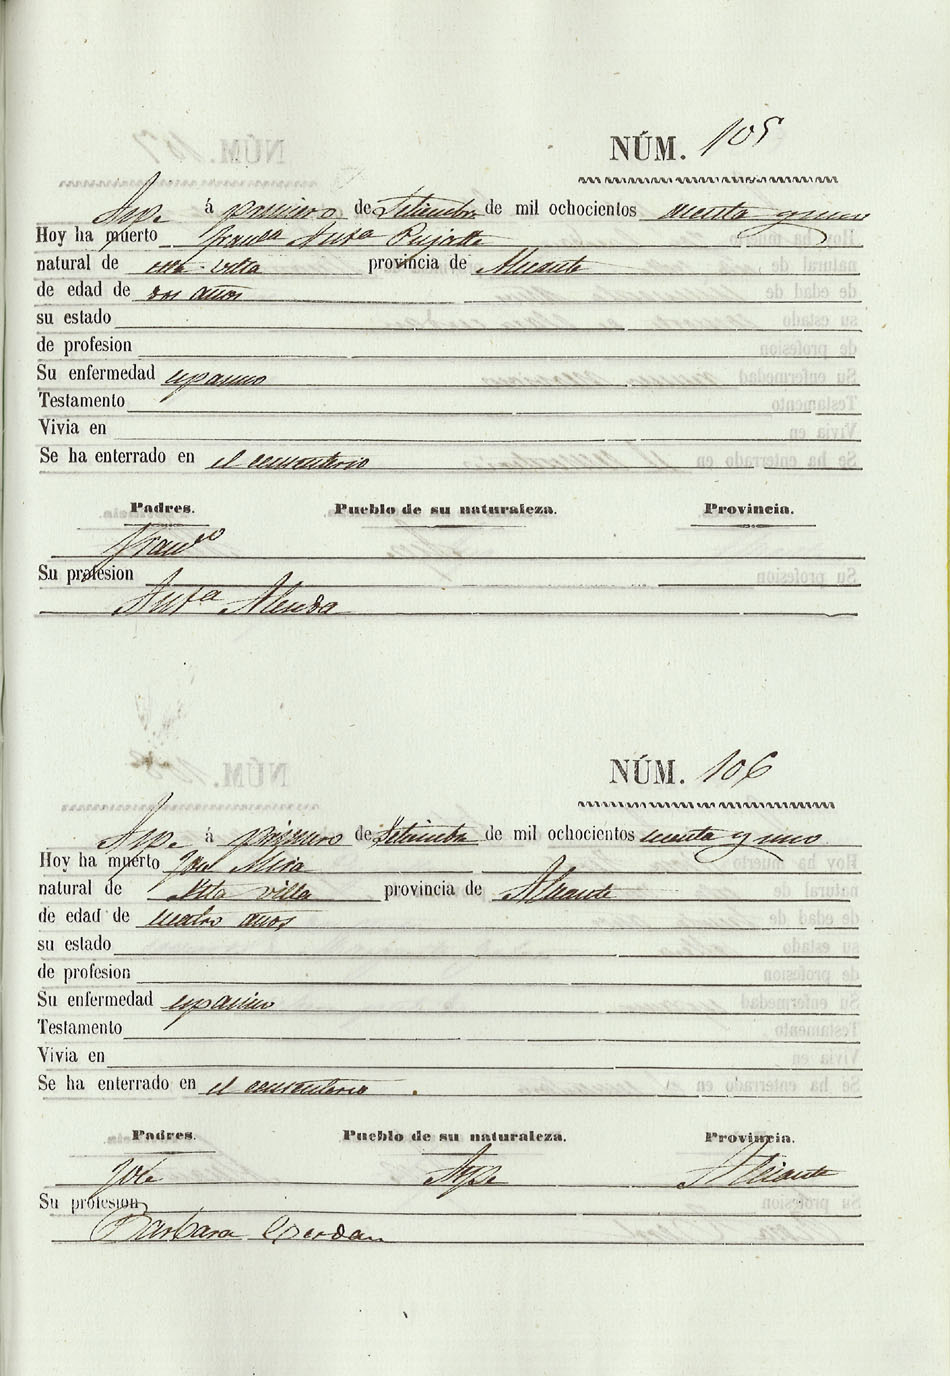 NÚM. 105
Aspe á primero de Setiembre de mil ochocientos cuenta y uno
Hoy ha muerto Fran.ca Ant.a Pujalte
natural de esta villa provincia de Alicante
de edad de dos años
su estado
de profesion
Su enfermedad espasmo
Testamento
Vivia en
Se ha enterrado en el cementerio
Padres. Pueblo de su naturaleza. Provincia.
Fran.co
Su profesion
Ant.a Alenda
NÚM. 106
Aspe á primero de Setiembre de mil ochocientos cuenta y uno
Hoy ha muerto Jose Mira
natural de esta villa provincia de Alicante
de edad de cuatro años
su estado
de profesion
Su enfermedad espasmo
Testamento
Vivia en
Se ha enterrado en el cementerio
Padres. Pueblo de su naturaleza. Provincia.
Jose Aspe Alicante
Su profesion
Barbara Cerdan